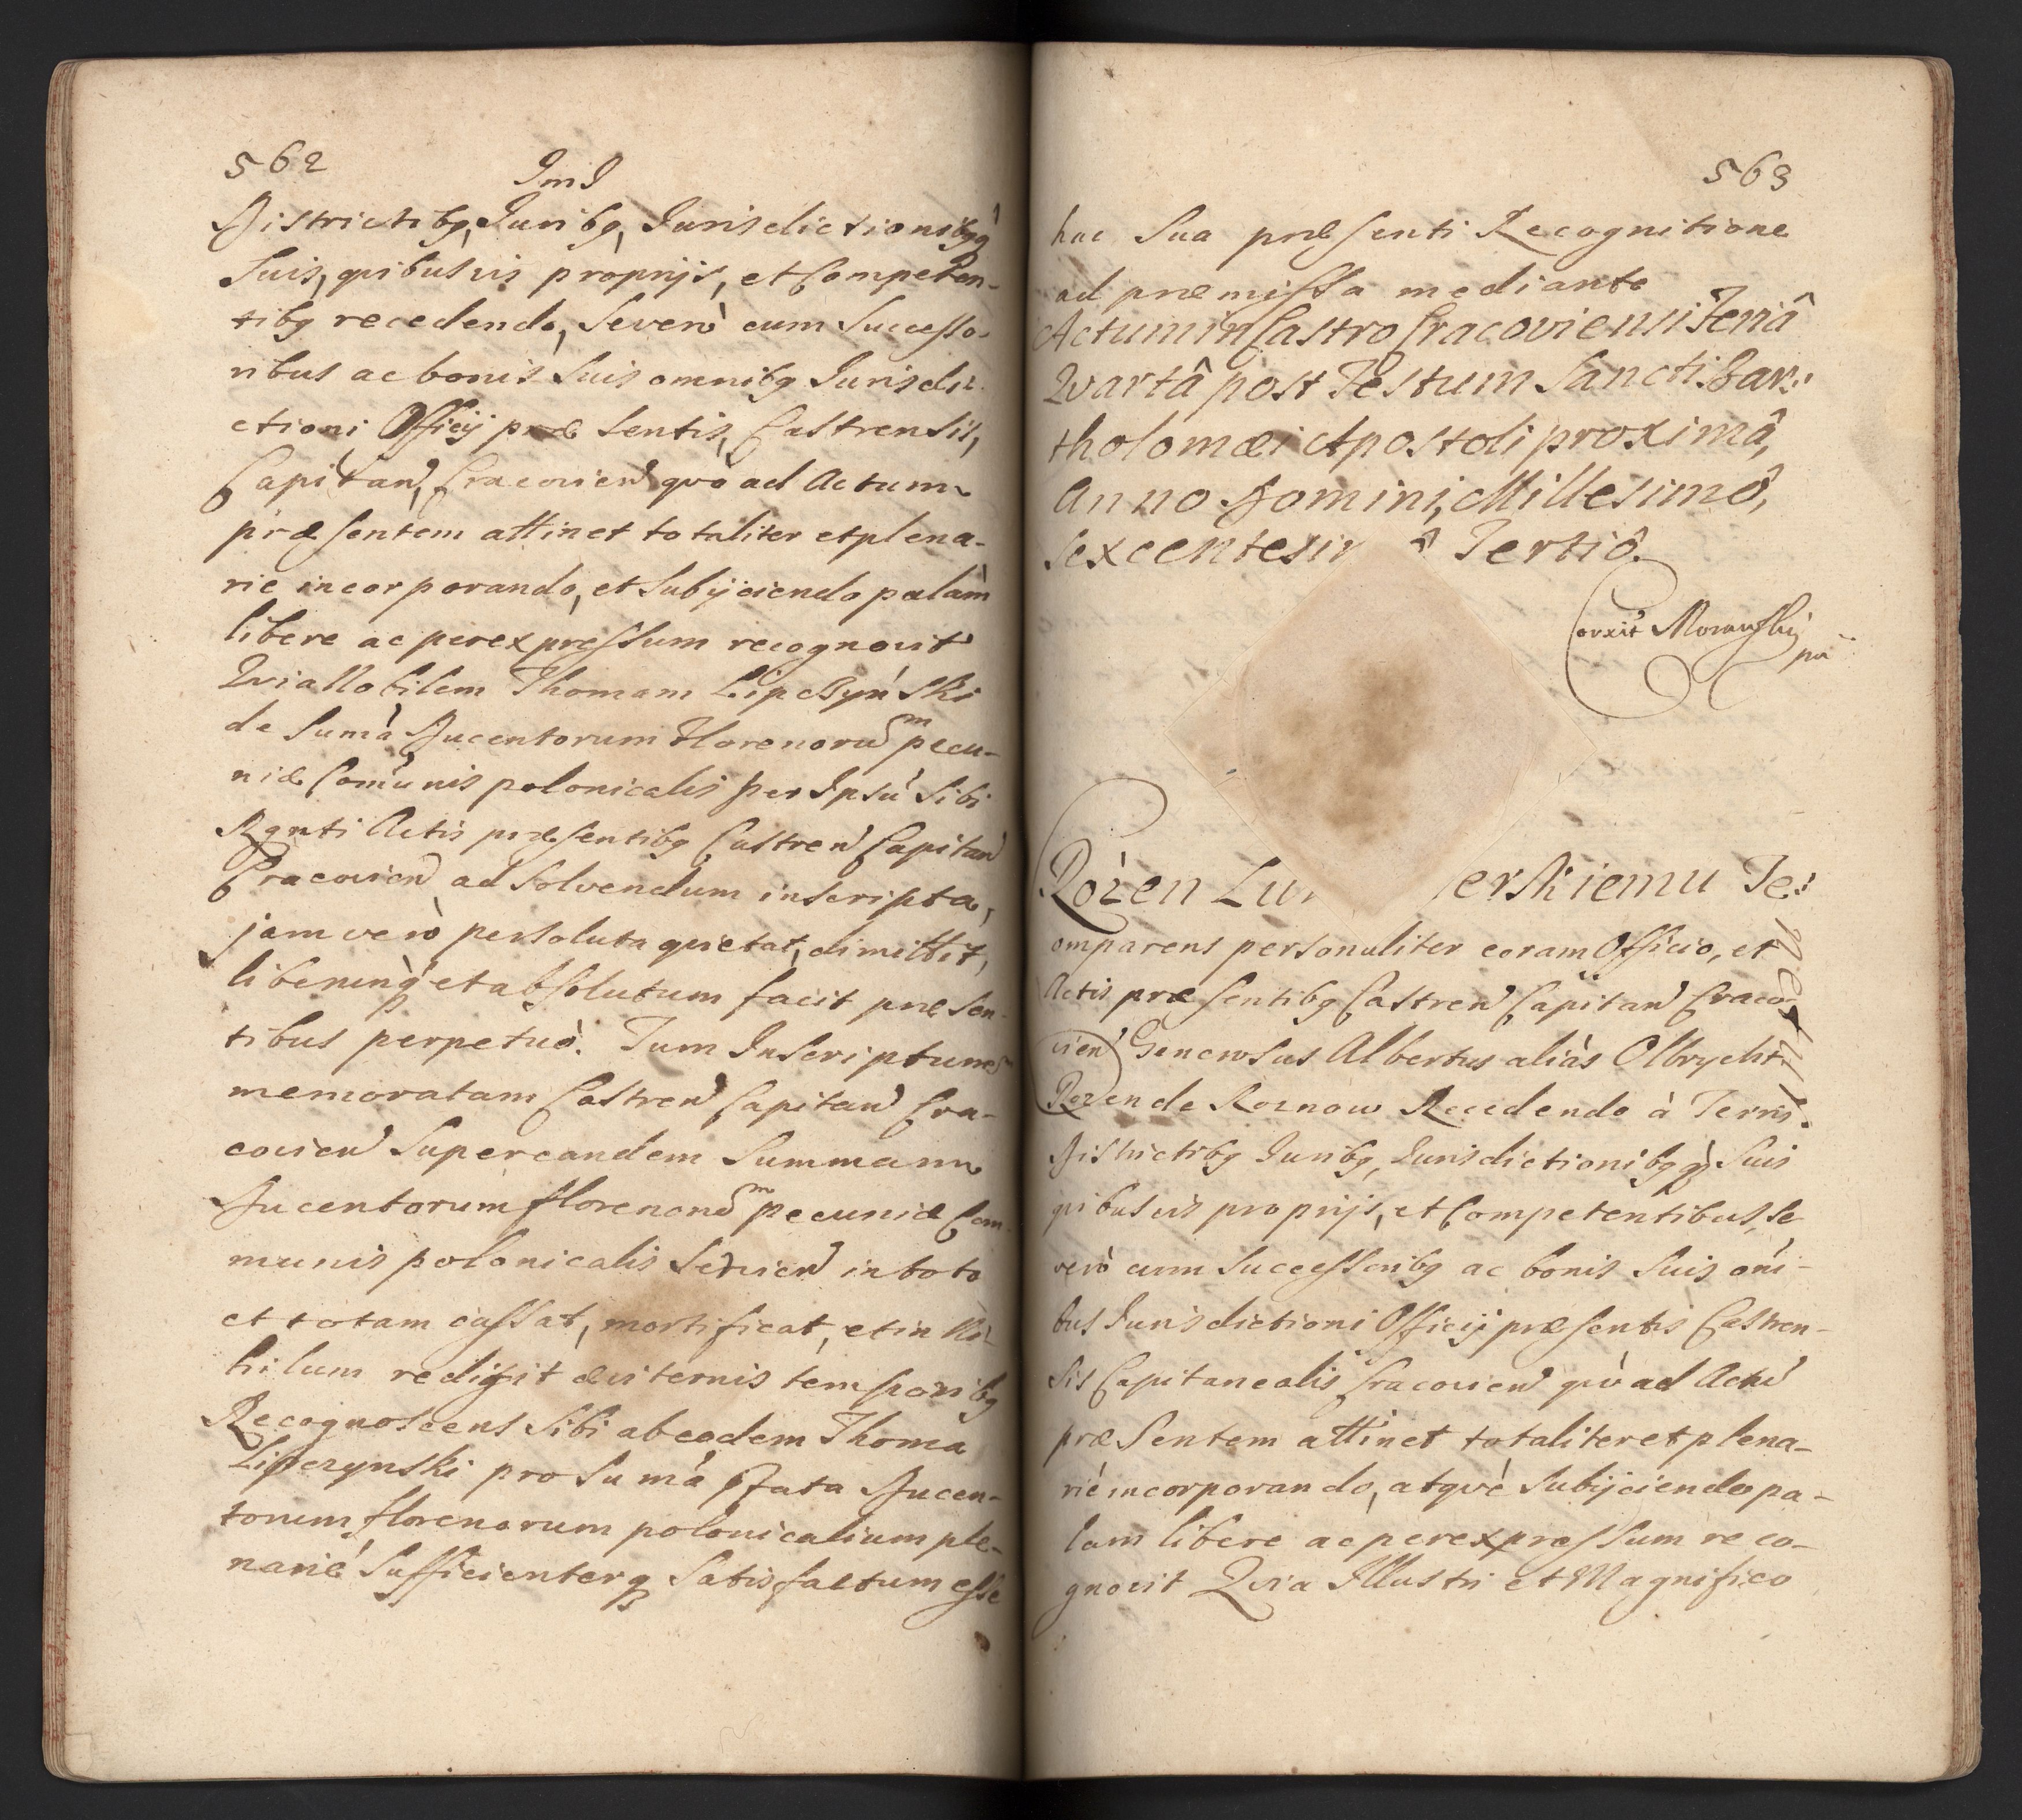 562
Ind
Districtibq, Juribq, Jurisdictionibqq
Suis, quibusvis proprijs, et Competen-
tibq recedendo, Severo cum Successo-
ribus ac bonis Suis omnibq Jurisdi-
ctioni Officij præsentis, Castrensis,
Capitan, Cracovien quò ad Actum
præsentem attinet totaliter et plena-
rie incorporando, et Subijciendo palàm
libere ac per expressum recognovit
Quia Nobilem Thomam Lipczyński
de Sumà Ducentorum Florenorum pecu-
niæ Com̃unis polonicalis per Ipsũ Sibi
Rgnti Actis præsentibq Castren Capitan
Cracovien ad Solvendum inscripta,
jam verò persoluta quietat, dimittit,
liberumq et absolutum facit præsen-
tibus perpetuò. Tum Inscriptionem
memoratam Castren Capitan Cra-
covien Super eandem Summam
Ducentorum florenorum pecuniæ Com-
munis polonicalis Servien in toto
et totam cassat, mortificat, et in Ni-
hilum redigit æviternis temporibq
Recognoscens Sibi ab eodem Thoma
Lipczynski pro Sumà pfata Ducen-
torum florenorum polonicalium ple-
nariè Sufficienterq Satisfactum esse
563
hac Sua præsenti Recognitione
ad præmissa mediante
Actum in Castro Cracoviensi Feriâ
Quartâ post Festum Sancti Bar:
tholomæi Apostoli proximâ,
Anno Domini, Millesimô,
Sexcentesi ô Tertiô.
Corxit Morawskij
pa
Rożen Lu erskiemu Te:
omparens personaliter coram Officio, et
Actis præsentibq Castren Capitan Craco-
vien Generosus Albertus aliàs Olbrycht
Rozen de Roznow Recedendo à Terris
Districtibq Juribq, Jurisdictionibqq Suis
quibusvis proprijs, et Competentibus, Se
verò cum Successoribq ac bonis Suis oñi-
bus Jurisdictioni Officij præsentis Castren-
sis Capitanealis Cracovien quò ad Actũ
præsentem attinet totaliter et plena-
riè incorporando, atquè Subijciendo pa-
lam libere ac per expressum reco-
gnovit Quia Illustri et Magnifico